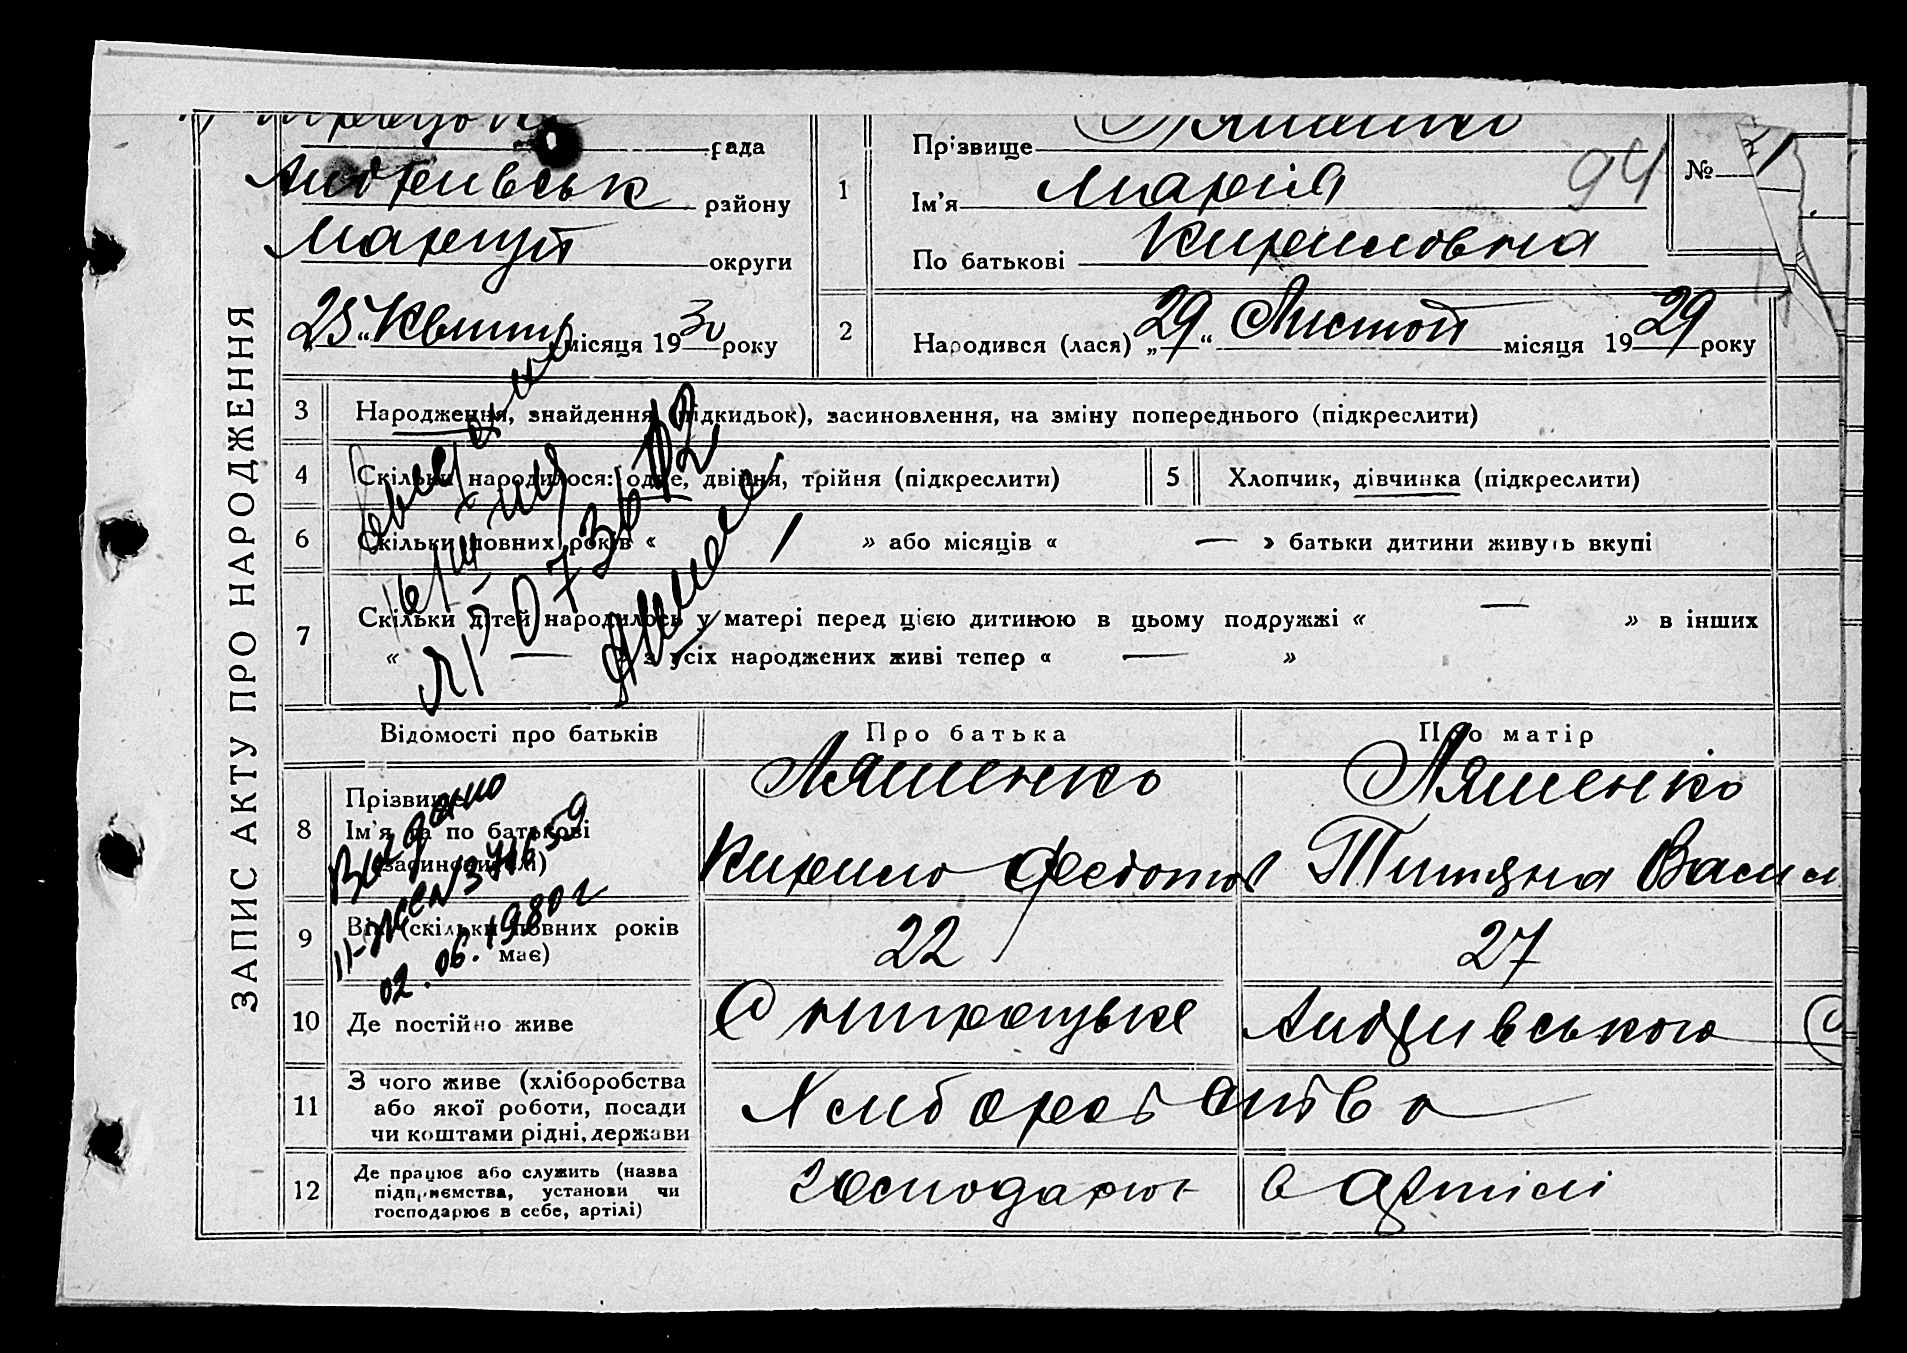 ЗАПИС АКТУ ПРО НАРОДЖЕННЯ
рада
Андріївськ району
Маріуп округи
25 " Квітня місяця 1930 року
1
Прізвище Ляшенко
Ім'я Марія
По батькові Кириловна
94
№ 31
2
Народився (лася) „29" Листоп місяця 1929 року
3 Народження, знайдення (підкидьок), засиновлення, на зміну попереднього (підкреслити)
4 Скільки народилося: одне, двійня, трійня (підкреслити)
5 Хлопчик, дівчинка (підкреслити)
6 Скільки повних років « 1 » або місяців « — » батьки дитини живуть вкупі
7 Скільки дітей народилось у матері перед цією дитиною в цьому подружжі « — » в інших
« — » з усіх народжених живі тепер « — »
Відомості про батьків
Про батька
Про матір
8 Прізвище
Ім'я та по батькові
(засиновителі)
Ляшенко
Кирило Федотов
Ляшенко
Титяна Васил
Выдано
02.06.1980г
9 Вік (скільки повних років має)
22
27
10 Де постійно живе
Андриівського
11 З чого живе (хліборобства
або якої роботи, посади
чи коштами рідні, держави
Хліборобство
12 Де працює або служить (назва
підприємства, установи чи
господарює в себе, артілі)
господарює в артілі